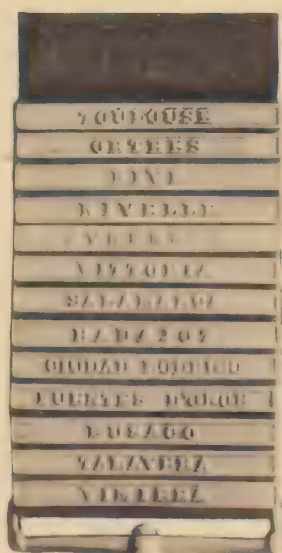 TOULOUSE
ORTHES
NIVE
NIVELLE
VITTORIA
SALAMANCA
BADAJOZ
CIUDAD RODRIGO
FUENTES D'ONOR
BUSACO
TALAVERA
VIMIERA